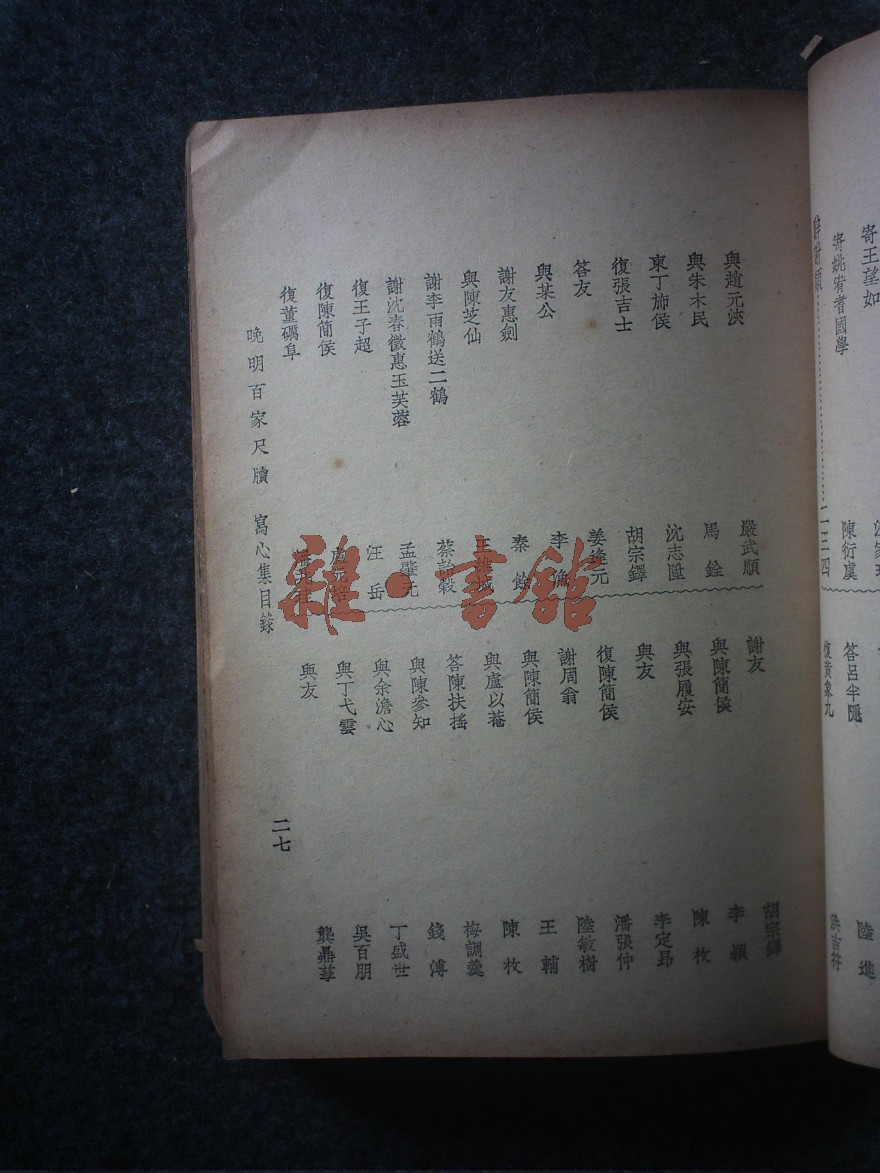 寄王望如
寄姚宥耆國學 陳衍虞
辭謝類……二三四
陸進
答呂半隱
復黃象九 洪吉符
與趙元浹 嚴武順
與朱木民 馬銓
柬丁斾侯 沈志
復張吉士 胡宗鐸
答友 姜逢元
與某公 李漁
謝友惠劍 秦
與陳芝仙 王
謝李雨鶴送二鶴 蔡
謝沈春徵惠玉芙蓉 孟肇元
復王子超 汪岳
復陳簡侯
復董礪阜
謝友 胡宗鐸
與陳簡侯 李穎
與張履安 陳枚
與友 李定昂
復陳簡侯 潘張仲
謝周翁 陸敏樹
與陳簡侯 王輔
與盧以菴 陳枚
答陳扶搖 梅調羹
與陳參知 錢溥
與余澹心 丁盛世
與丁弋雲 吳百朋
與友 龔鼎孳
晚明百家尺牘 寫心集目錄
二七
雜·書館